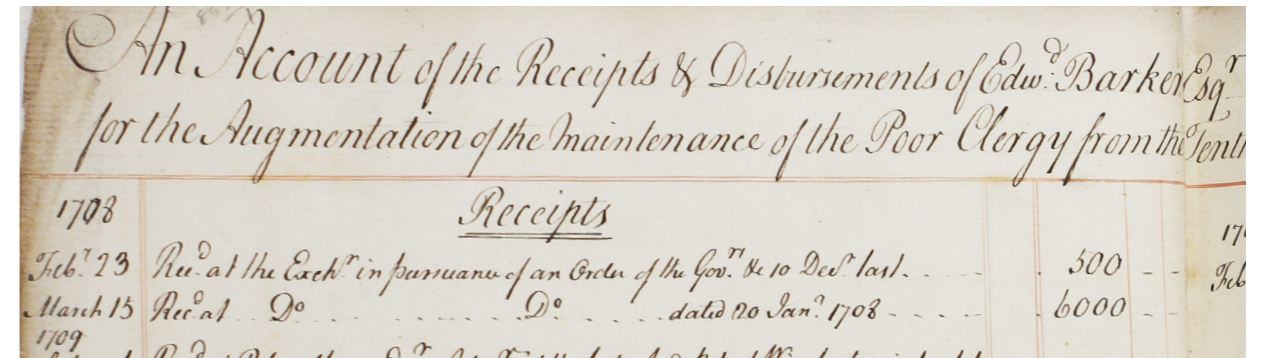 An Account of the Receipts & Disbursements of Edwd. Barker Esqr
for the Augmentation of the Maintenance of the Poor Clergy from the Tent
1708 Receipts
Febr. 23 Recd. at the Exchr. in pursuance of an Order of the Govrs. &c 10 Decr. last. 500 - -
March 15 Recd. at Do Do dated 20 Janr. 1708 6000 - -
1709
170
Feb